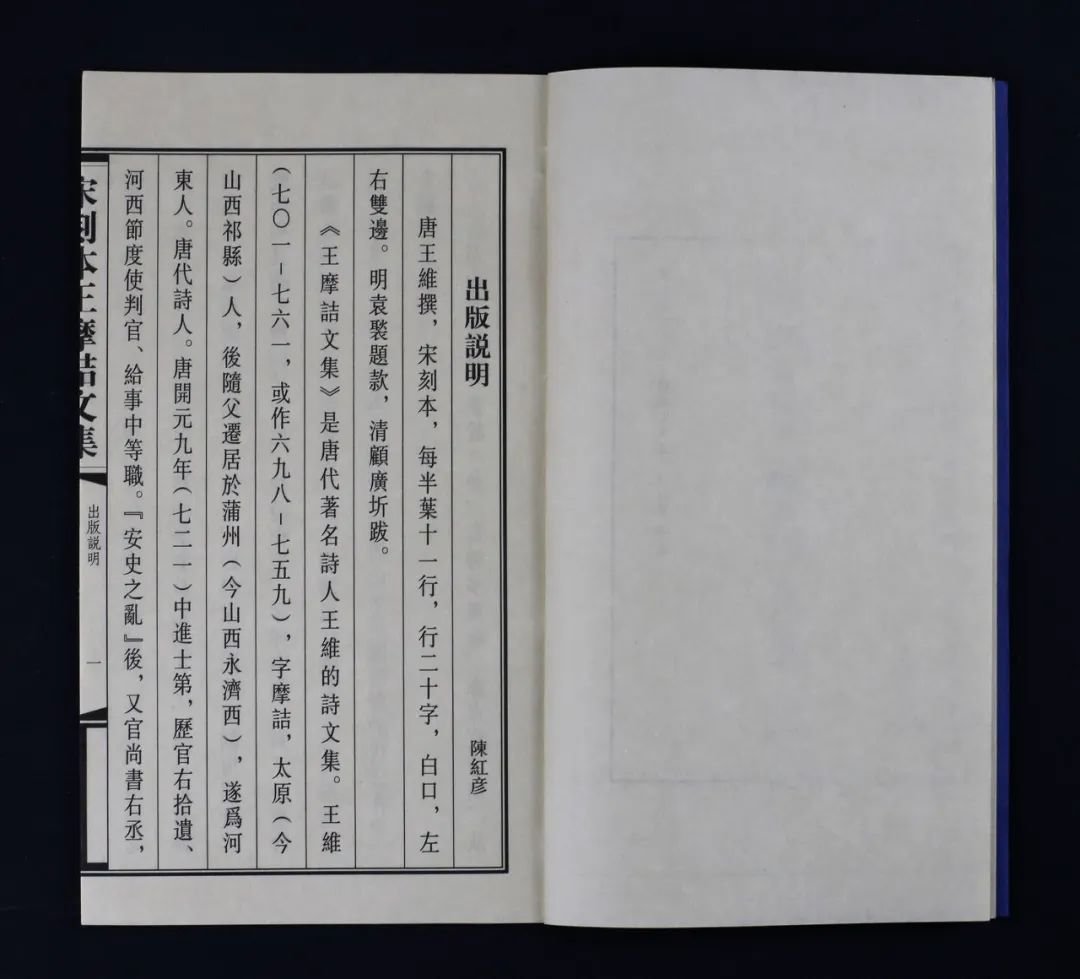 出版説明
陳紅彦
唐王維撰，宋刻本，每半葉十一行，行二十字，白口，左
右雙邊。明袁褧題款，清顧廣圻跋。
《王摩詰文集》是唐代著名詩人王維的詩文集。王維
（七〇一–七六一，或作六九八–七五九），字摩詰，太原（今
山西祁縣）人，後隨父遷居於蒲州（今山西永濟西），遂爲河
東人。唐代詩人。唐開元九年（七二一）中進士第，歷官右拾遺、
河西節度使判官、給事中等職。『安史之亂』後，又官尚書右丞，
宋刻本王摩詰文集
出版説明
一